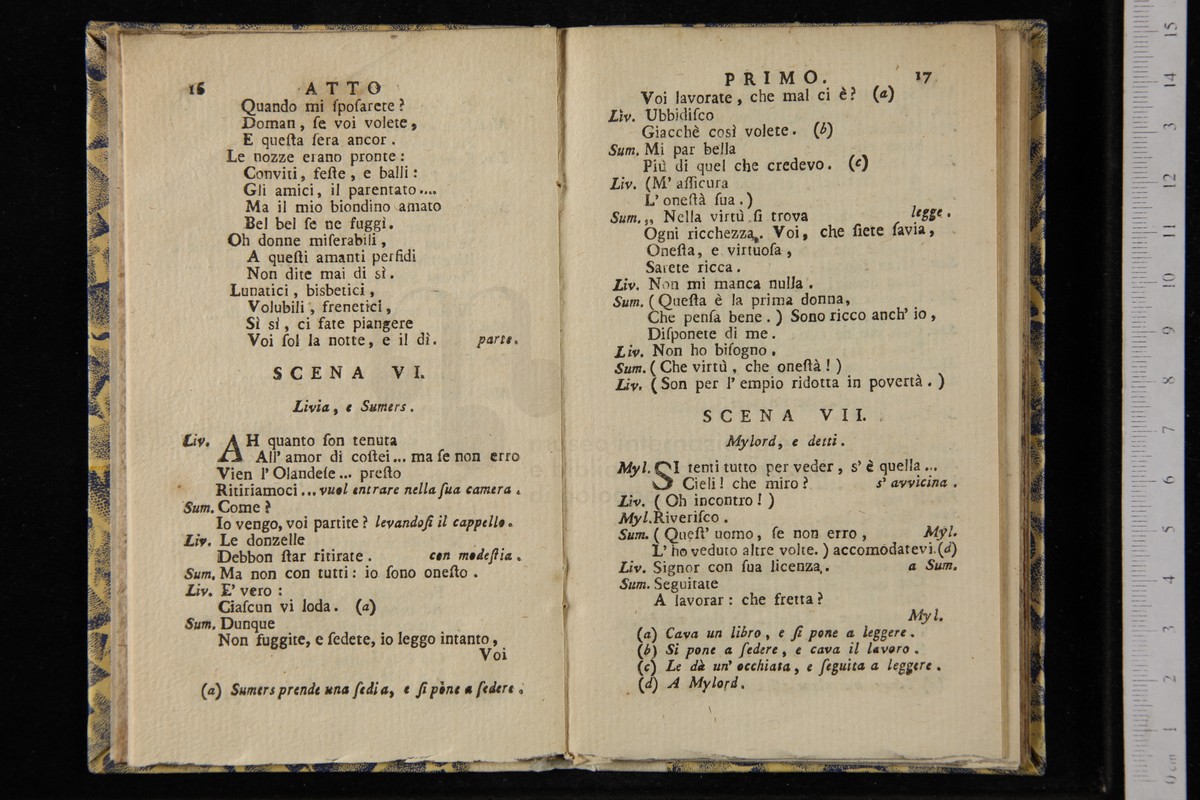 16 ATTO
Quando mi ſpoſarete?
Doman, ſe voi volete,
E queſta ſera ancor.
Le nozze erano pronte:
Conviti, feſte, e balli:
Gli amici, il parentato....
Ma il mio biondino amato
Bel bel ſe ne fuggì.
Oh donne miſerabili,
A queſti amanti perfidi
Non dite mai di sì.
Lunatici, bisbetici,
Volubili, frenetici,
Sì sì, ci fate piangere
Voi ſol la notte, e il dì. parte.
SCENA VI.
Livia, e Sumers.
Liv. AH quanto ſon tenuta
All' amor di coſtei... ma ſe non erro
Vien l' Olandeſe... preſto
Ritiriamoci... vuol entrare nella ſua camera.
Sum. Come?
Io vengo, voi partite? levandoſi il cappello.
Liv. Le donzelle
Debbon ſtar ritirate. con modeſtia.
Sum. Ma non con tutti: io ſono oneſto.
Liv. E' vero:
Ciaſcun vi loda. (a)
Sum. Dunque
Non fuggite, e ſedete, io leggo intanto,
Voi
(a) Sumers prende una ſedia, e ſi pone a ſedere.
PRIMO. 17
Voi lavorate, che mal ci è? (a)
Liv. Ubbidiſco
Giacchè così volete. (b)
Sum. Mi par bella
Più di quel che credevo. (c)
Liv. (M' aſſicura
L' oneſtà ſua.)
Sum. „ Nella virtù ſi trova legge.
Ogni ricchezza„. Voi, che ſiete ſavia,
Oneſta, e virtuoſa,
Sarete ricca.
Liv. Non mi manca nulla.
Sum. (Queſta è la prima donna,
Che penſa bene.) Sono ricco anch' io,
Diſponete di me.
Liv. Non ho biſogno.
Sum. (Che virtù, che oneſtà!)
Liv. (Son per l' empio ridotta in povertà.)
SCENA VII.
Mylord, e detti.
Myl. SI tenti tutto per veder, s' è quella...
Cieli! che miro? s' avvicina.
Liv. (Oh incontro!)
Myl. Riveriſco.
Sum. (Queſt' uomo, ſe non erro, Myl.
L' ho veduto altre volte.) accomodatevi. (d)
Liv. Signor con ſua licenza. a Sum.
Sum. Seguitate
A lavorar: che fretta?
Myl.
(a) Cava un libro, e ſi pone a leggere.
(b) Si pone a ſedere, e cava il lavoro.
(c) Le dà un' occhiata, e ſeguita a leggere.
(d) A Mylord.
0 cm 1 2 3 4 5 6 7 8 9 10 11 12 13 14 15